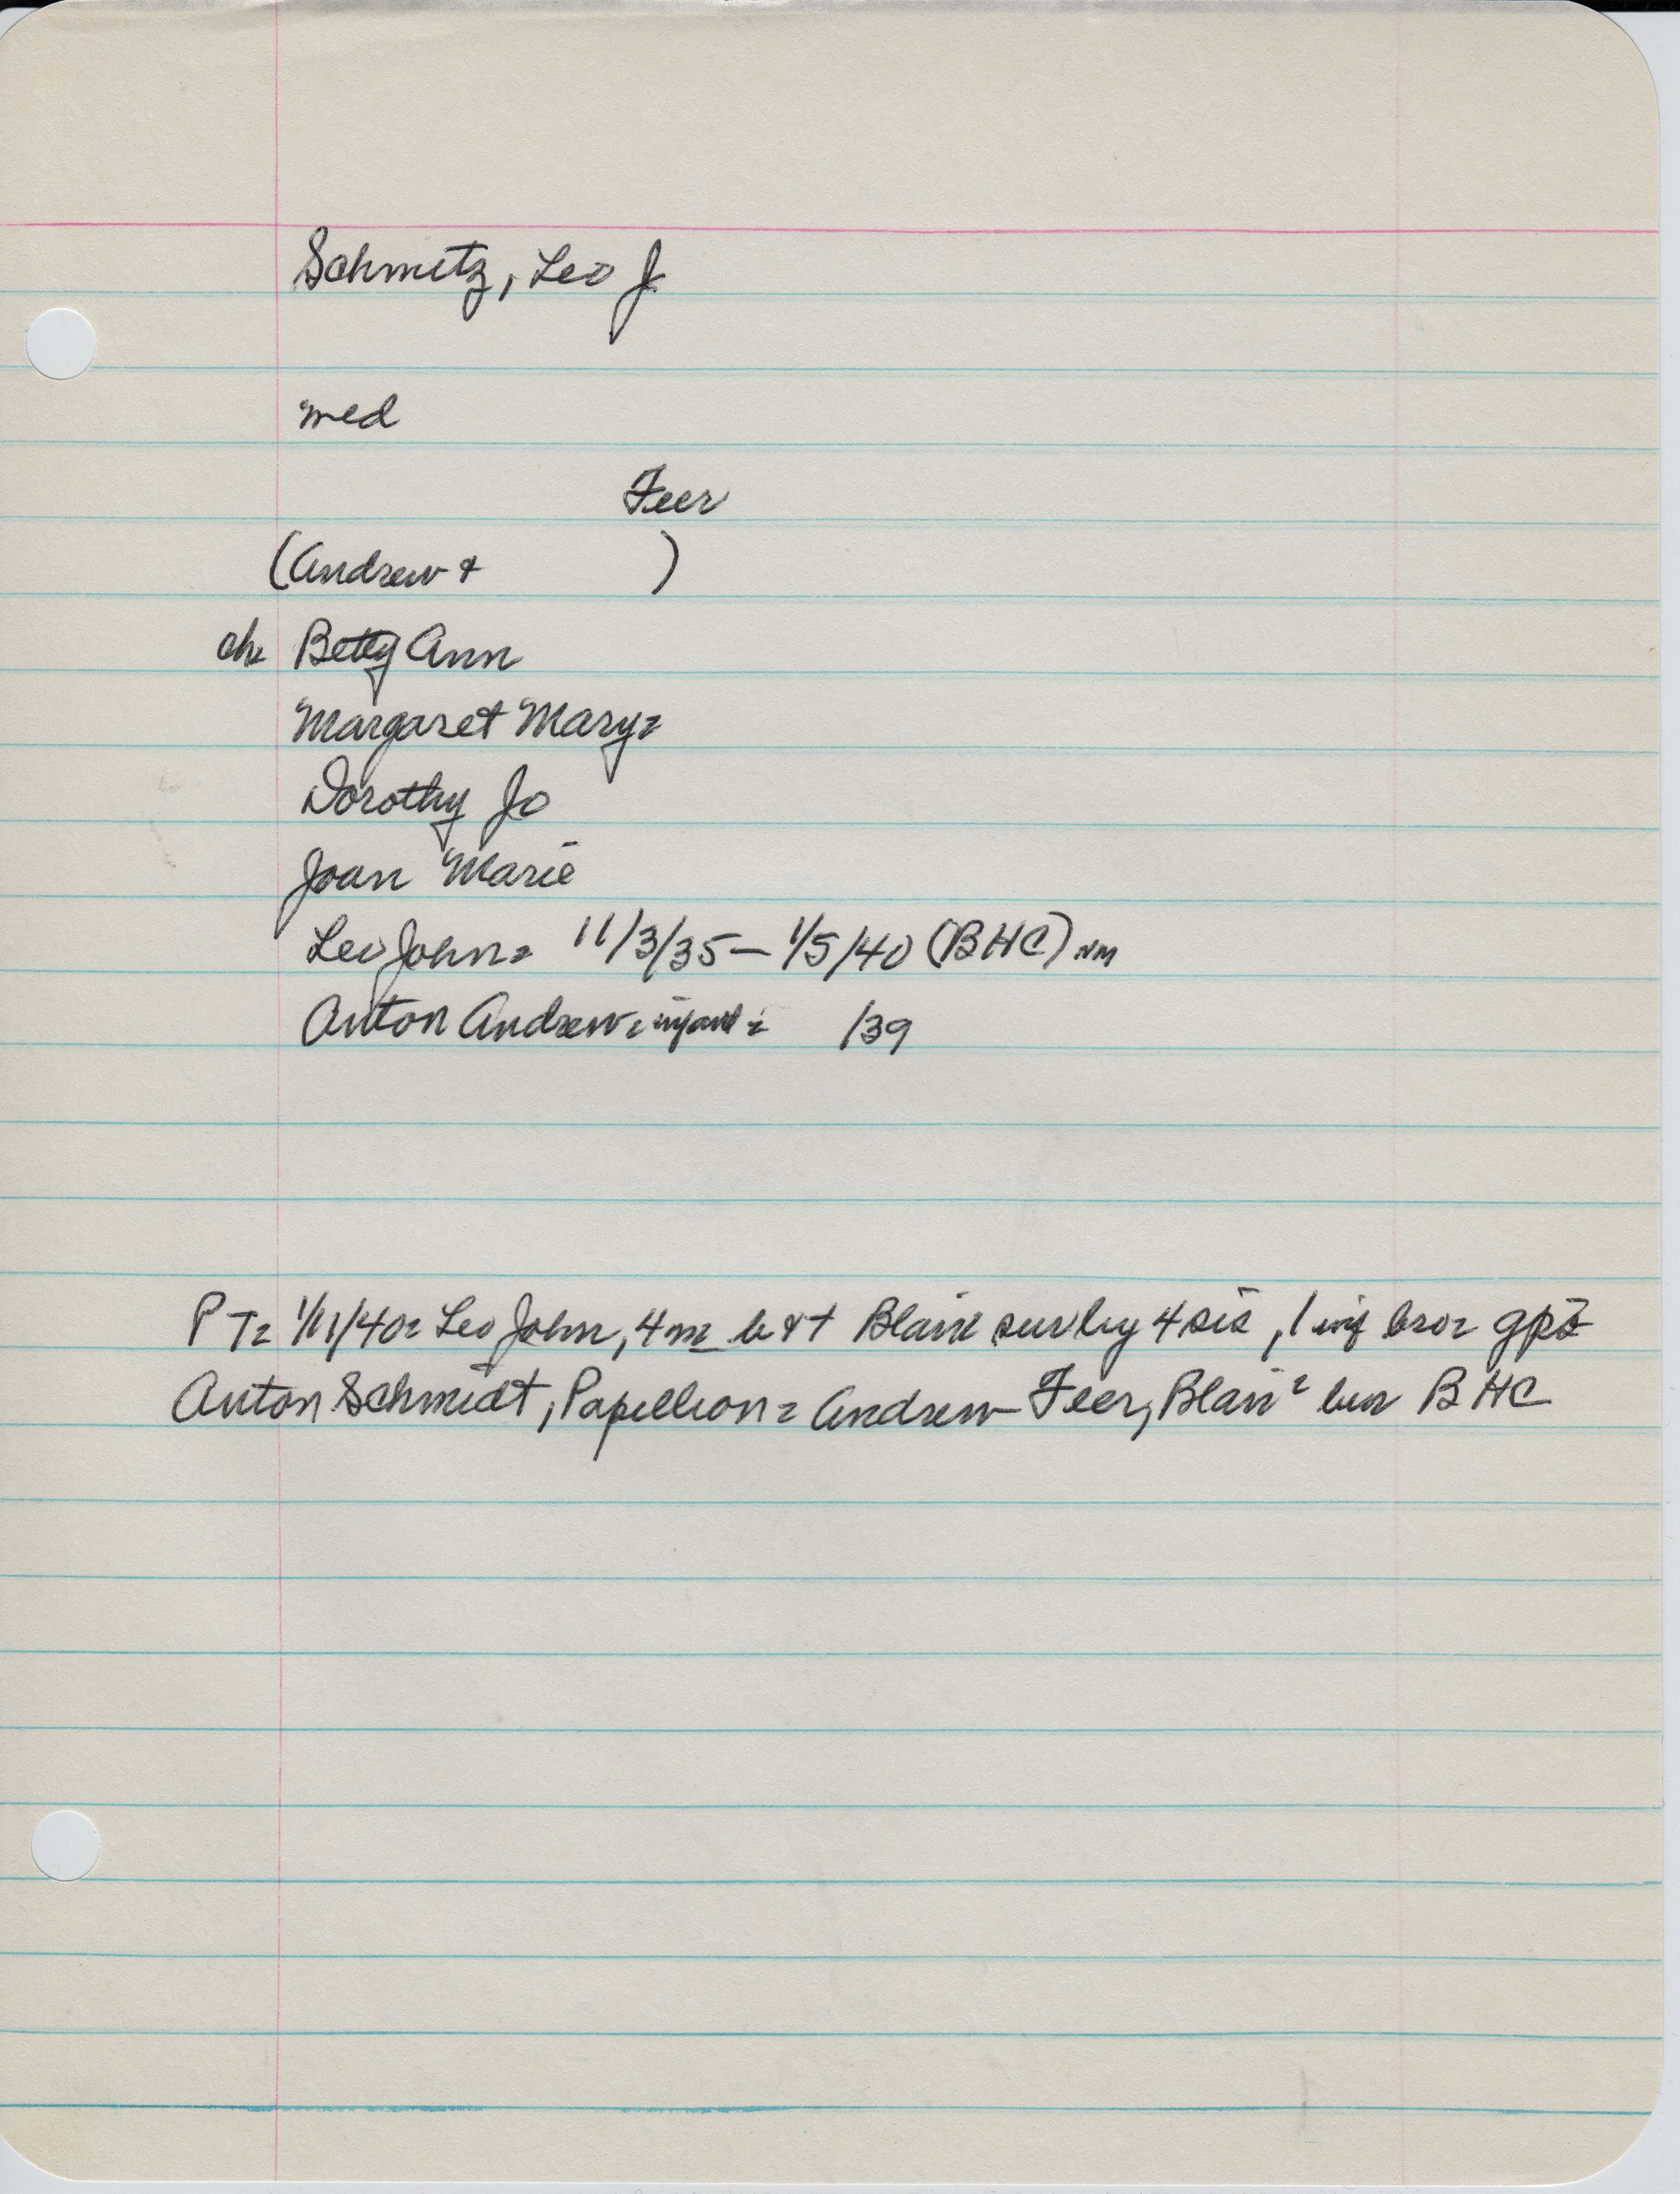 Schmitz, Leo J
med
Feer
(Andrew + )
ch= Betty Ann
Margaret Mary=
Dorothy Jo
Joan Marie
Leo John= 11/3/35 – 1/5/40 (BHC) NM
Anton Andrew= infant= /39
PT= 1/11/40= Leo John, 4 m= b & + Blair sur by 4 sis, 1 inf bro= gps
Anton Schmidt, Papillion= Andrew Feer, Blair= bur BHC